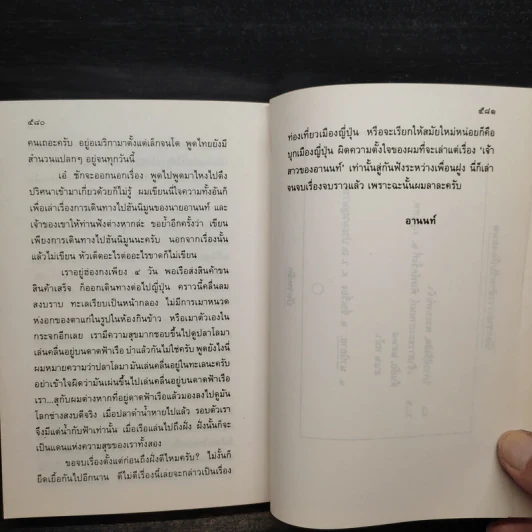 ๕๘๐
คนเถอะครับ อยู่อเมริกามาตั้งแต่เล็กจนโต พูดไทยยังมี
สำนวนแปลกๆ อยู่จนทุกวันนี้
เอ๋ ชักจะออกนอกเรื่อง พูดไปพูดมาไหงไปดึง
ปริศนาเข้ามาเกี่ยวด้วยก็ไม่รู้ ผมเขียนนี่ใจความทั้งอันก็
เพื่อเล่าเรื่องการเดินทางไปฮันนิมูนของนายอานนท์ และ
เจ้าของเขาให้ท่านฟังต่างหากล่ะ ขอย้ำอีกครั้งว่า เขียน
เพียงการเดินทางไปฮันนิมูนนะครับ นอกจากเรื่องนั้น
แล้วไม่เขียน หัวเด็ดอะไรต่ออะไรขาดก็ไม่เขียน
เราอยู่ฮ่องกงเพียง ๔ วัน พอเรือส่งสินค้าขน
สินค้าเสร็จ ก็ออกเดินทางต่อไปญี่ปุ่น คราวนี้คลื่นลม
สงบราบ ทะเลเรียบเป็นหน้ากลอง ไม่มีการเมาหงวด
หง่องอกของตาแก่ในรูปในห้องกินข้าว หรือเมาตัวเองใน
กระจกอีกเลย เรามีความสุขมากชอบขึ้นไปดูปลาโลมา
เล่นคลื่นอยู่บนดาดฟ้าเรือ บ๋าแล้วกันไม่ใช่ครับ พูดยังไงนี่
ผมหมายความว่าปลาโลมา มันเล่นคลื่นอยู่ในทะเลนะครับ
อย่าเข้าใจผิดว่ามันเผ่นขึ้นไปเล่นคลื่นอยู่บนดาดฟ้าเรือ
เรา...สุกับผมต่างหากที่อยู่ดาดฟ้าเรือแล้วมองลงไปดูมัน
โลกช่างสงบดีจริง เมื่อปลาดำน้ำหายไปแล้ว รอบตัวเรา
จึงมีแต่น้ำกับฟ้าเท่านั้น เมื่อเรือแล่นไปถึงฝั่ง ฝั่งนั้นก็จะ
เป็นแดนแห่งความสุขของเราทั้งสอง
ขอจบเรื่องตั้งแต่ก่อนถึงฝั่งดีไหมครับ? ไม่งั้นก็
ยืดเยื้อกันไปอีกนาน ดีไม่ดีเรื่องนี้เลยจะกล่าวเป็นเรื่อง
๕๘๑
ท่องเที่ยวเมืองญี่ปุ่น หรือจะเรียกให้สมัยใหม่หน่อยก็คือ
บุกเมืองญี่ปุ่น ผิดความตั้งใจของผมที่จะเล่าแต่เรื่อง 'เจ้า
สาวของอานนท์' เท่านั้นสู่กันฟังระหว่างเพื่อนฝูง นี่ก็เล่า
จนจบเรื่องจบราวแล้ว เพราะฉะนั้นผมลาละครับ
อานนท์